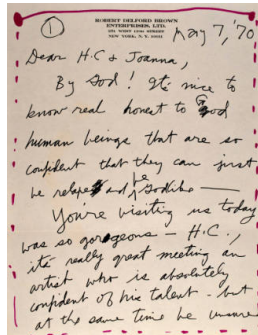 ROBERT DELFORD BROWN
ENTERPRISES, LTD.
NEW YORK, N. Y. 10011
① May 7, '70
Dear H.C & Joanna,
By God! It's nice to
know real honest to God
human beings that are so
confident that they can just
be and be Godlike —
You're visiting us today
was so gorgeous — H.C.,
it's really great meeting an
artist who is absolutely
confident of his talent - but
at the same time be unsure